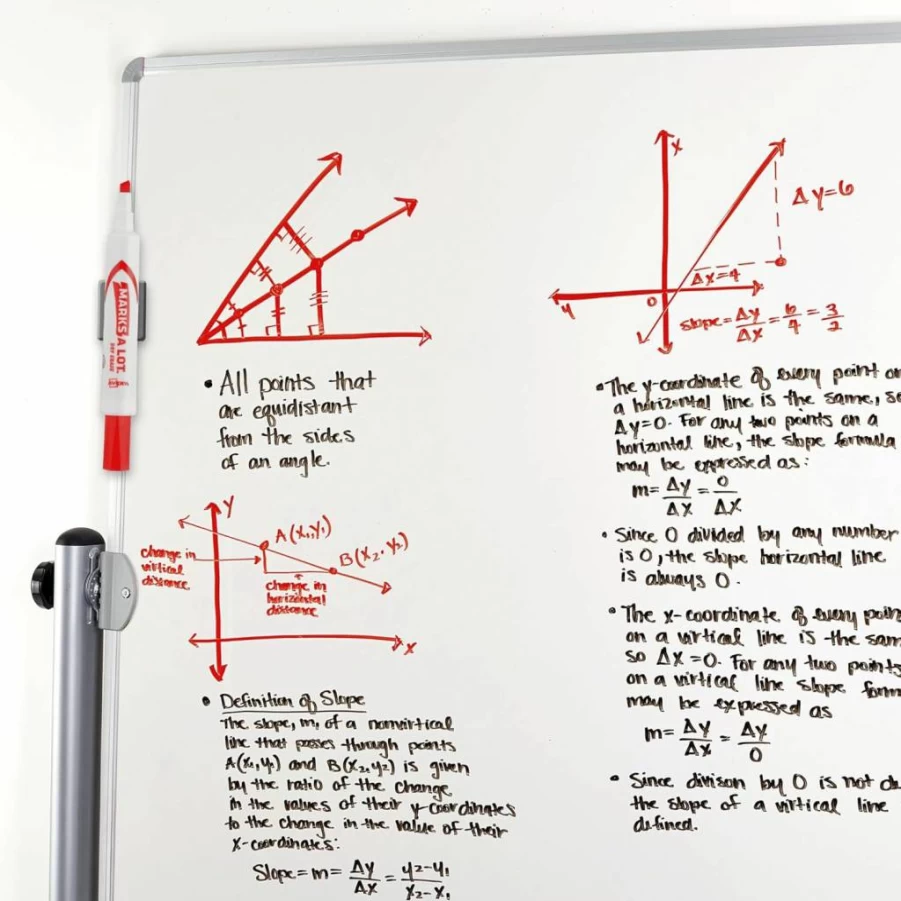 MARKS A LOT.
DRY ERASE
• All points that
are equidistant
from the sides
of an angle.
Y
A(x₁,y₁)
B(x₂,y₂)
change in
vertical
distance
change in
horizontal
distance
X
• Definition of Slope
The slope, m, of a nonvertical
line that passes through points
A(x₁,y₁) and B(x₂,y₂) is given
by the ratio of the change
in the values of their y-coordinates
to the change in the value of their
x-coordinates:
Slope = m = Δy/Δx = y₂-y₁/x₂-x₁
X
Δy=6
Δx=4
y
0
slope = Δy/Δx = 6/4 = 3/2
• The y-coordinate of every point on
a horizontal line is the same, so
Δy=0. For any two points on a
horizontal line, the slope formula
may be expressed as:
m = Δy/Δx = 0/Δx
• Since 0 divided by any number
is 0, the slope horizontal line
is always 0.
• The x-coordinate of every poin
on a vertical line is the sam
so Δx=0. For any two points
on a vertical line slope form
may be expressed as
m = Δy/Δx = Δy/0
• Since divison by 0 is not de
the slope of a vertical line
defined.